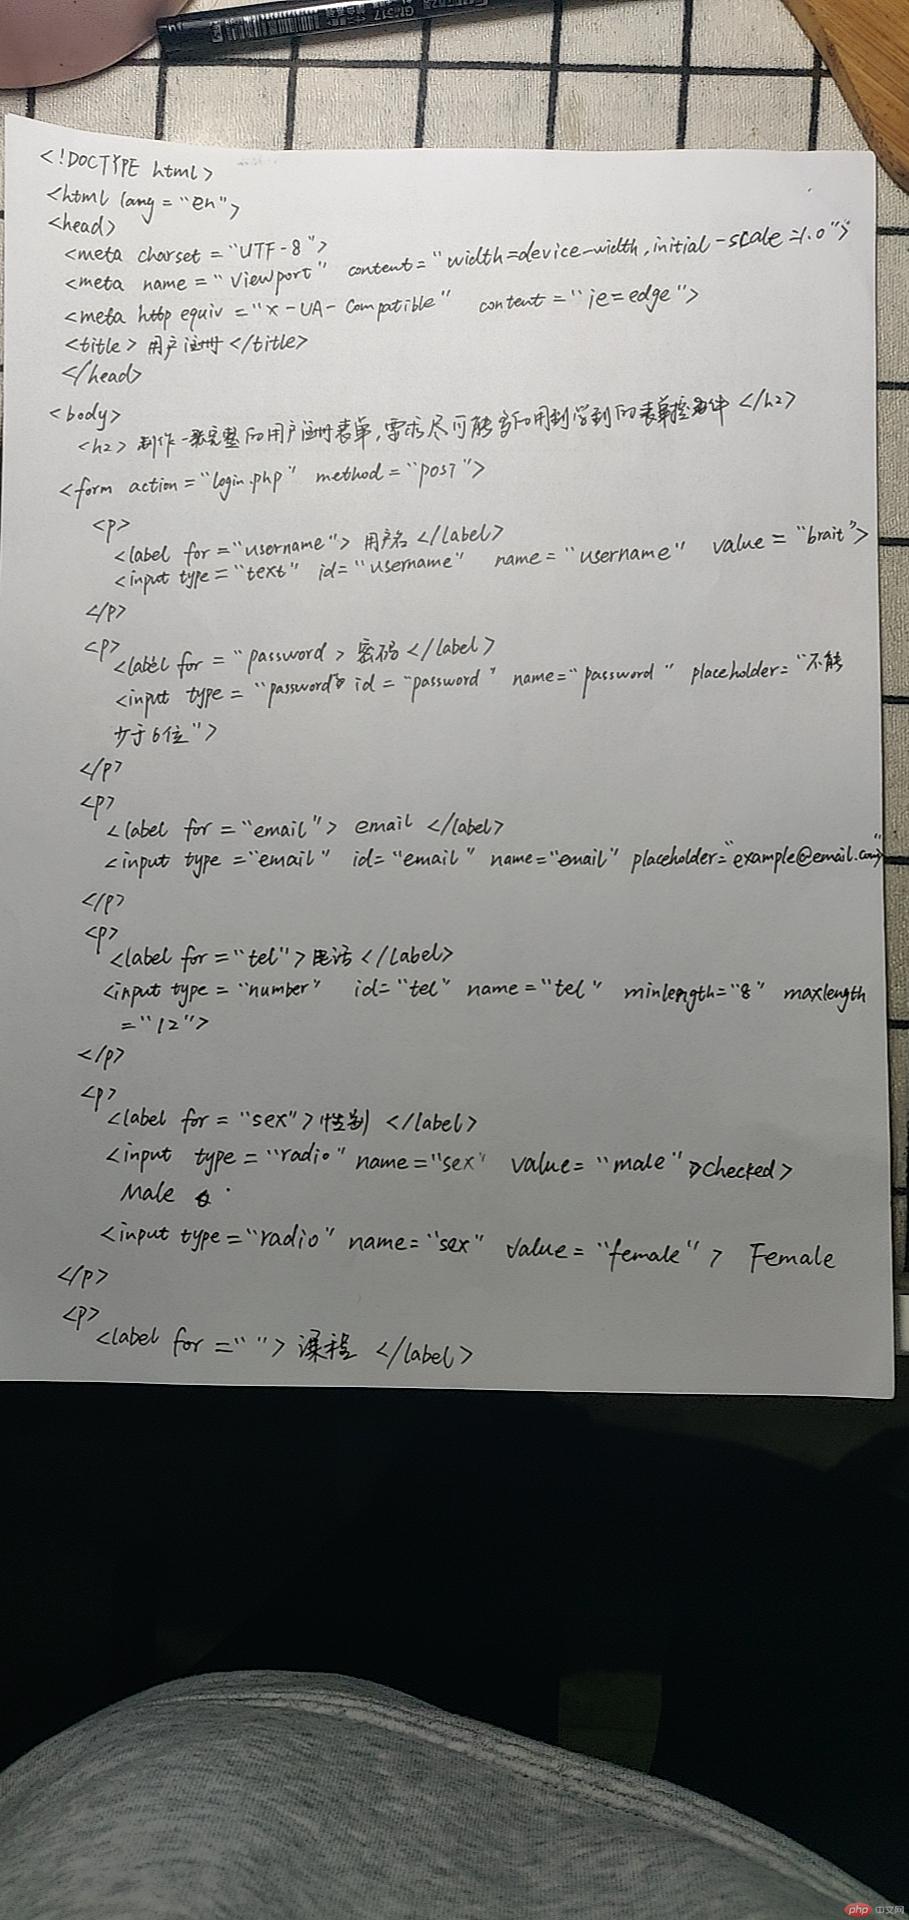 <!DOCTYPE html>
<html lang = "en">
<head>
<meta charset = "UTF-8">
<meta name = "viewport" content = "width=device-width, initial-scale=1.0">
<meta http equiv = "X-UA-Compatible" content = "ie=edge">
<title> 用户注册 </title>
</head>
<body>
<h2> 制作一张完整的用户注册表单,需求尽可能多的用到学到的表单控件 </h2>
<form action = "login.php" method = "post">
<p>
<label for = "username"> 用户名 </label>
<input type = "text" id = "username" name = "username" value = "brait">
</p>
<p>
<label for = "password > 密码 </label>
<input type = "password" id = "password" name = "password" placeholder = "不能
少于6位">
</p>
<p>
<label for = "email"> email </label>
<input type = "email" id = "email" name = "email" placeholder = "example@email.com">
</p>
<p>
<label for = "tel"> 电话 </label>
<input type = "number" id = "tel" name = "tel" minlength = "8" maxlength
= "12">
</p>
<p>
<label for = "sex"> 性别 </label>
<input type = "radio" name = "sex" value = "male" checked>
Male
<input type = "radio" name = "sex" value = "female" > Female
</p>
<p>
<label for = " "> 课程 </label>
php 中文网